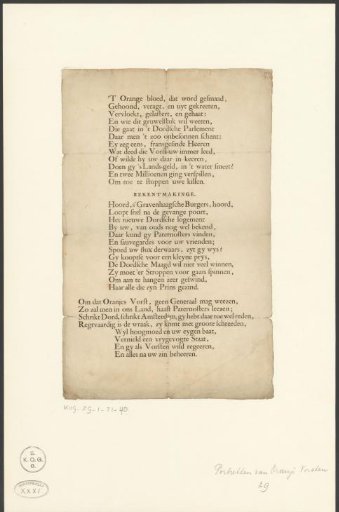 'T Orange bloed, dat word gesmaad,
Gehoond, veragt, en uyt gekreeten,
Vervloekt, gelastert, en gehaat:
En wie dit gruwelstuk wil weeten,
Die gaat in 't Dordsche Parlement
Daar men 't zoo onbesonnen schent:
Ey zeg eens, fransgesinde Heeren
Wat deed die Vorst uw immer leed,
Of wilde hy uw daar in keeren,
Doen gy 's Lands-geld, in 't water smeet?
En twee Millioenen ging verspillen,
Om toe te stoppen uwe killen.
BEKENTMAKINGE.
Hoord, s'Gravenhaagsche Burgers, hoord,
Loopt snel na de gevange poort,
Het nieuwe Dordsche logement
By uw, van ouds nog wel bekend,
Daar kund gy Paternosters vinden,
En sauvegardes voor uw vrienden;
Spoed uw flux derwaars, zyt gy wys?
Gy kooptse voor een kleyne prys,
De Dordsche Maagd wil niet veel winnen,
Zy moet'er Stroppen voor gaan spinnen,
Om aan te hangen zeer gezwind,
Haar alle die zyn Prins gezind.
Om dat Oranjes Vorst, geen Generaal mag weezen,
Zo zal men in ons Land, haast Paternosters leezen;
Schrikt Dord, schrikt Amsterdam, gy hebt daar toe wel reden,
Regtvaardig is de wraak, zy komt met groote schreeden,
Wyl hoogmoed en uw eygen baat,
Vernield een vrygevogte Staat,
En gy als Vorsten wild regeeren,
En alles na uw zin beheeren.
KOG-ZG-1-31-40
S.
K.O.G.
G.
XXXI.
Portretten van Oranje Vorsten
29